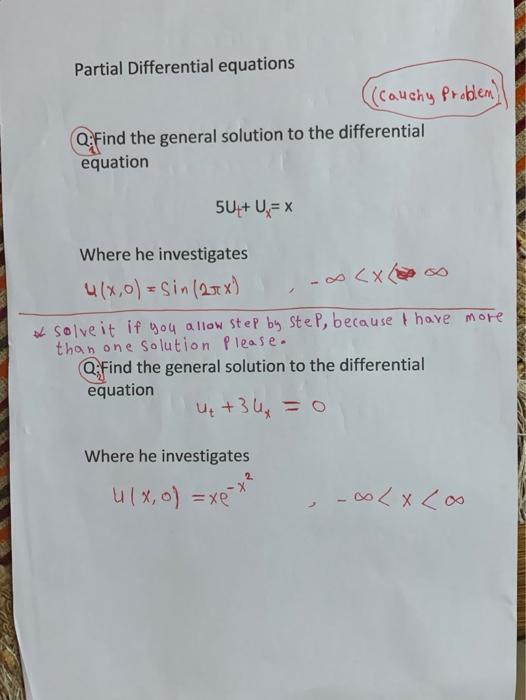 Partial Differential equations
(Cauchy Problem)
Q1:Find the general solution to the differential
equation
5Ut+ Ux= x
Where he investigates
u(x,0) = Sin(2πx) , -∞ < x < ∞
* solve it if you allow step by step, because I have more
than one solution please.
Q2:Find the general solution to the differential
equation
ut + 3ux = 0
Where he investigates
u(x,0) = xe^-x² , -∞ < x < ∞